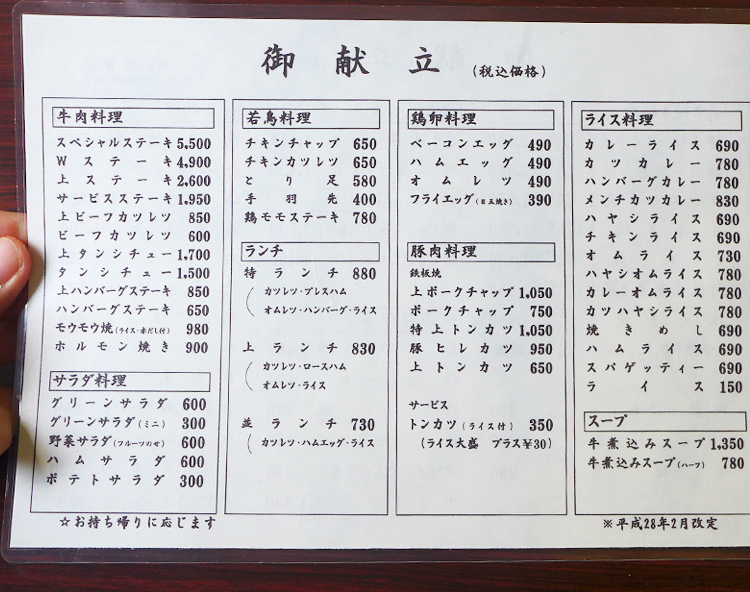 御献立 (税込価格)
牛肉料理
スペシャルステーキ 5,500
Wステーキ 4,900
上ステーキ 2,600
サービスステーキ 1,950
上ビーフカツレツ 850
ビーフカツレツ 600
上タンシチュー 1,700
タンシチュー 1,500
上ハンバーグステーキ 850
ハンバーグステーキ 650
モウモウ焼(ライス・赤だし付) 980
ホルモン焼き 900
サラダ料理
グリーンサラダ 600
グリーンサラダ(ミニ) 300
野菜サラダ(フルーツのせ) 600
ハムサラダ 600
ポテトサラダ 300
☆お持ち帰りに応じます
若鳥料理
チキンチャップ 650
チキンカツレツ 650
とり足 580
手羽先 400
鶏モモステーキ 780
ランチ
特ランチ 880
カツレツ・プレスハム
オムレツ・ハンバーグ・ライス
上ランチ 830
カツレツ・ロースハム
オムレツ・ライス
並ランチ 730
カツレツ・ハムエッグ・ライス
鶏卵料理
ベーコンエッグ 490
ハムエッグ 490
オムレツ 490
フライエッグ(目玉焼き) 390
豚肉料理
鉄板焼
上ポークチャップ 1,050
ポークチャップ 750
特上トンカツ 1,050
豚ヒレカツ 950
上トンカツ 650
サービス
トンカツ(ライス付) 350
(ライス大盛 プラス¥30)
ライス料理
カレーライス 690
カツカレー 780
ハンバーグカレー 780
メンチカツカレー 830
ハヤシライス 690
チキンライス 690
オムライス 730
ハヤシオムライス 780
カレーオムライス 780
カツハヤシライス 780
焼きめし 690
ハムライス 690
スパゲッティー 690
ライス 150
スープ
牛煮込みスープ 1,350
牛煮込みスープ(ハーフ) 780
※平成28年2月改定